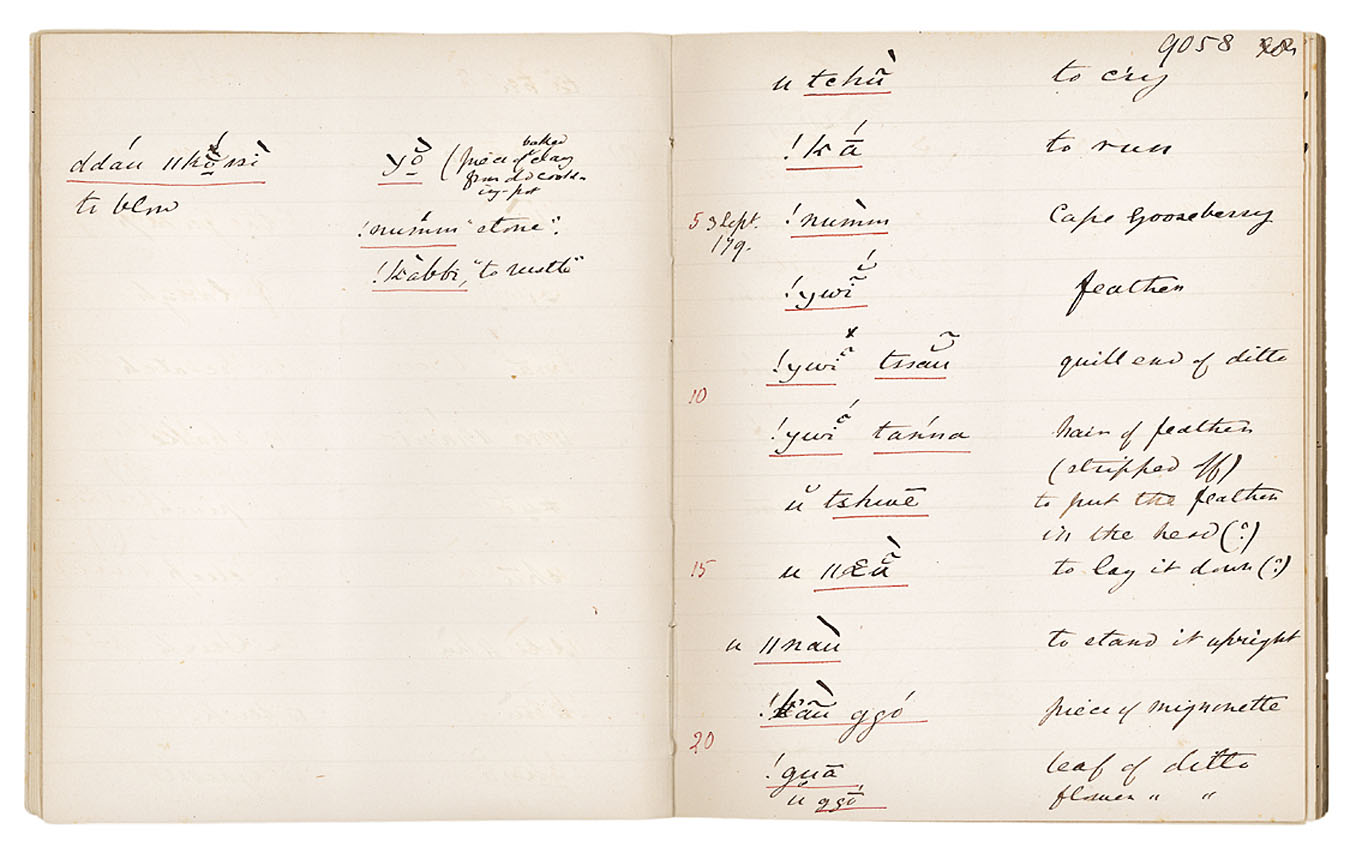 ddáu ǁkō̆nsì
to blow
yŏ̀ (piece of baked clay
from old cook-
ing-pot
!nu̍mm "stone".
!kàbbi, "to rustle"
9058
u tchũ̀ to cry
!kā́ to run
5 3 Sept. !nùmm Cape Gooseberry
179.
!ywĭ̃́ feather
!ywĭ̃ tssãŭ quill end of ditto
10
!ywĭ̃́ tánna hair of feather
(stripped off)
ŭ tshwē to put the feather
in the head (?)
15 u to lay it down (?)
u ǁnaù to stand it upright
ggó piece of mignonette
20
!guā leaf of ditto
u ggó flower " "